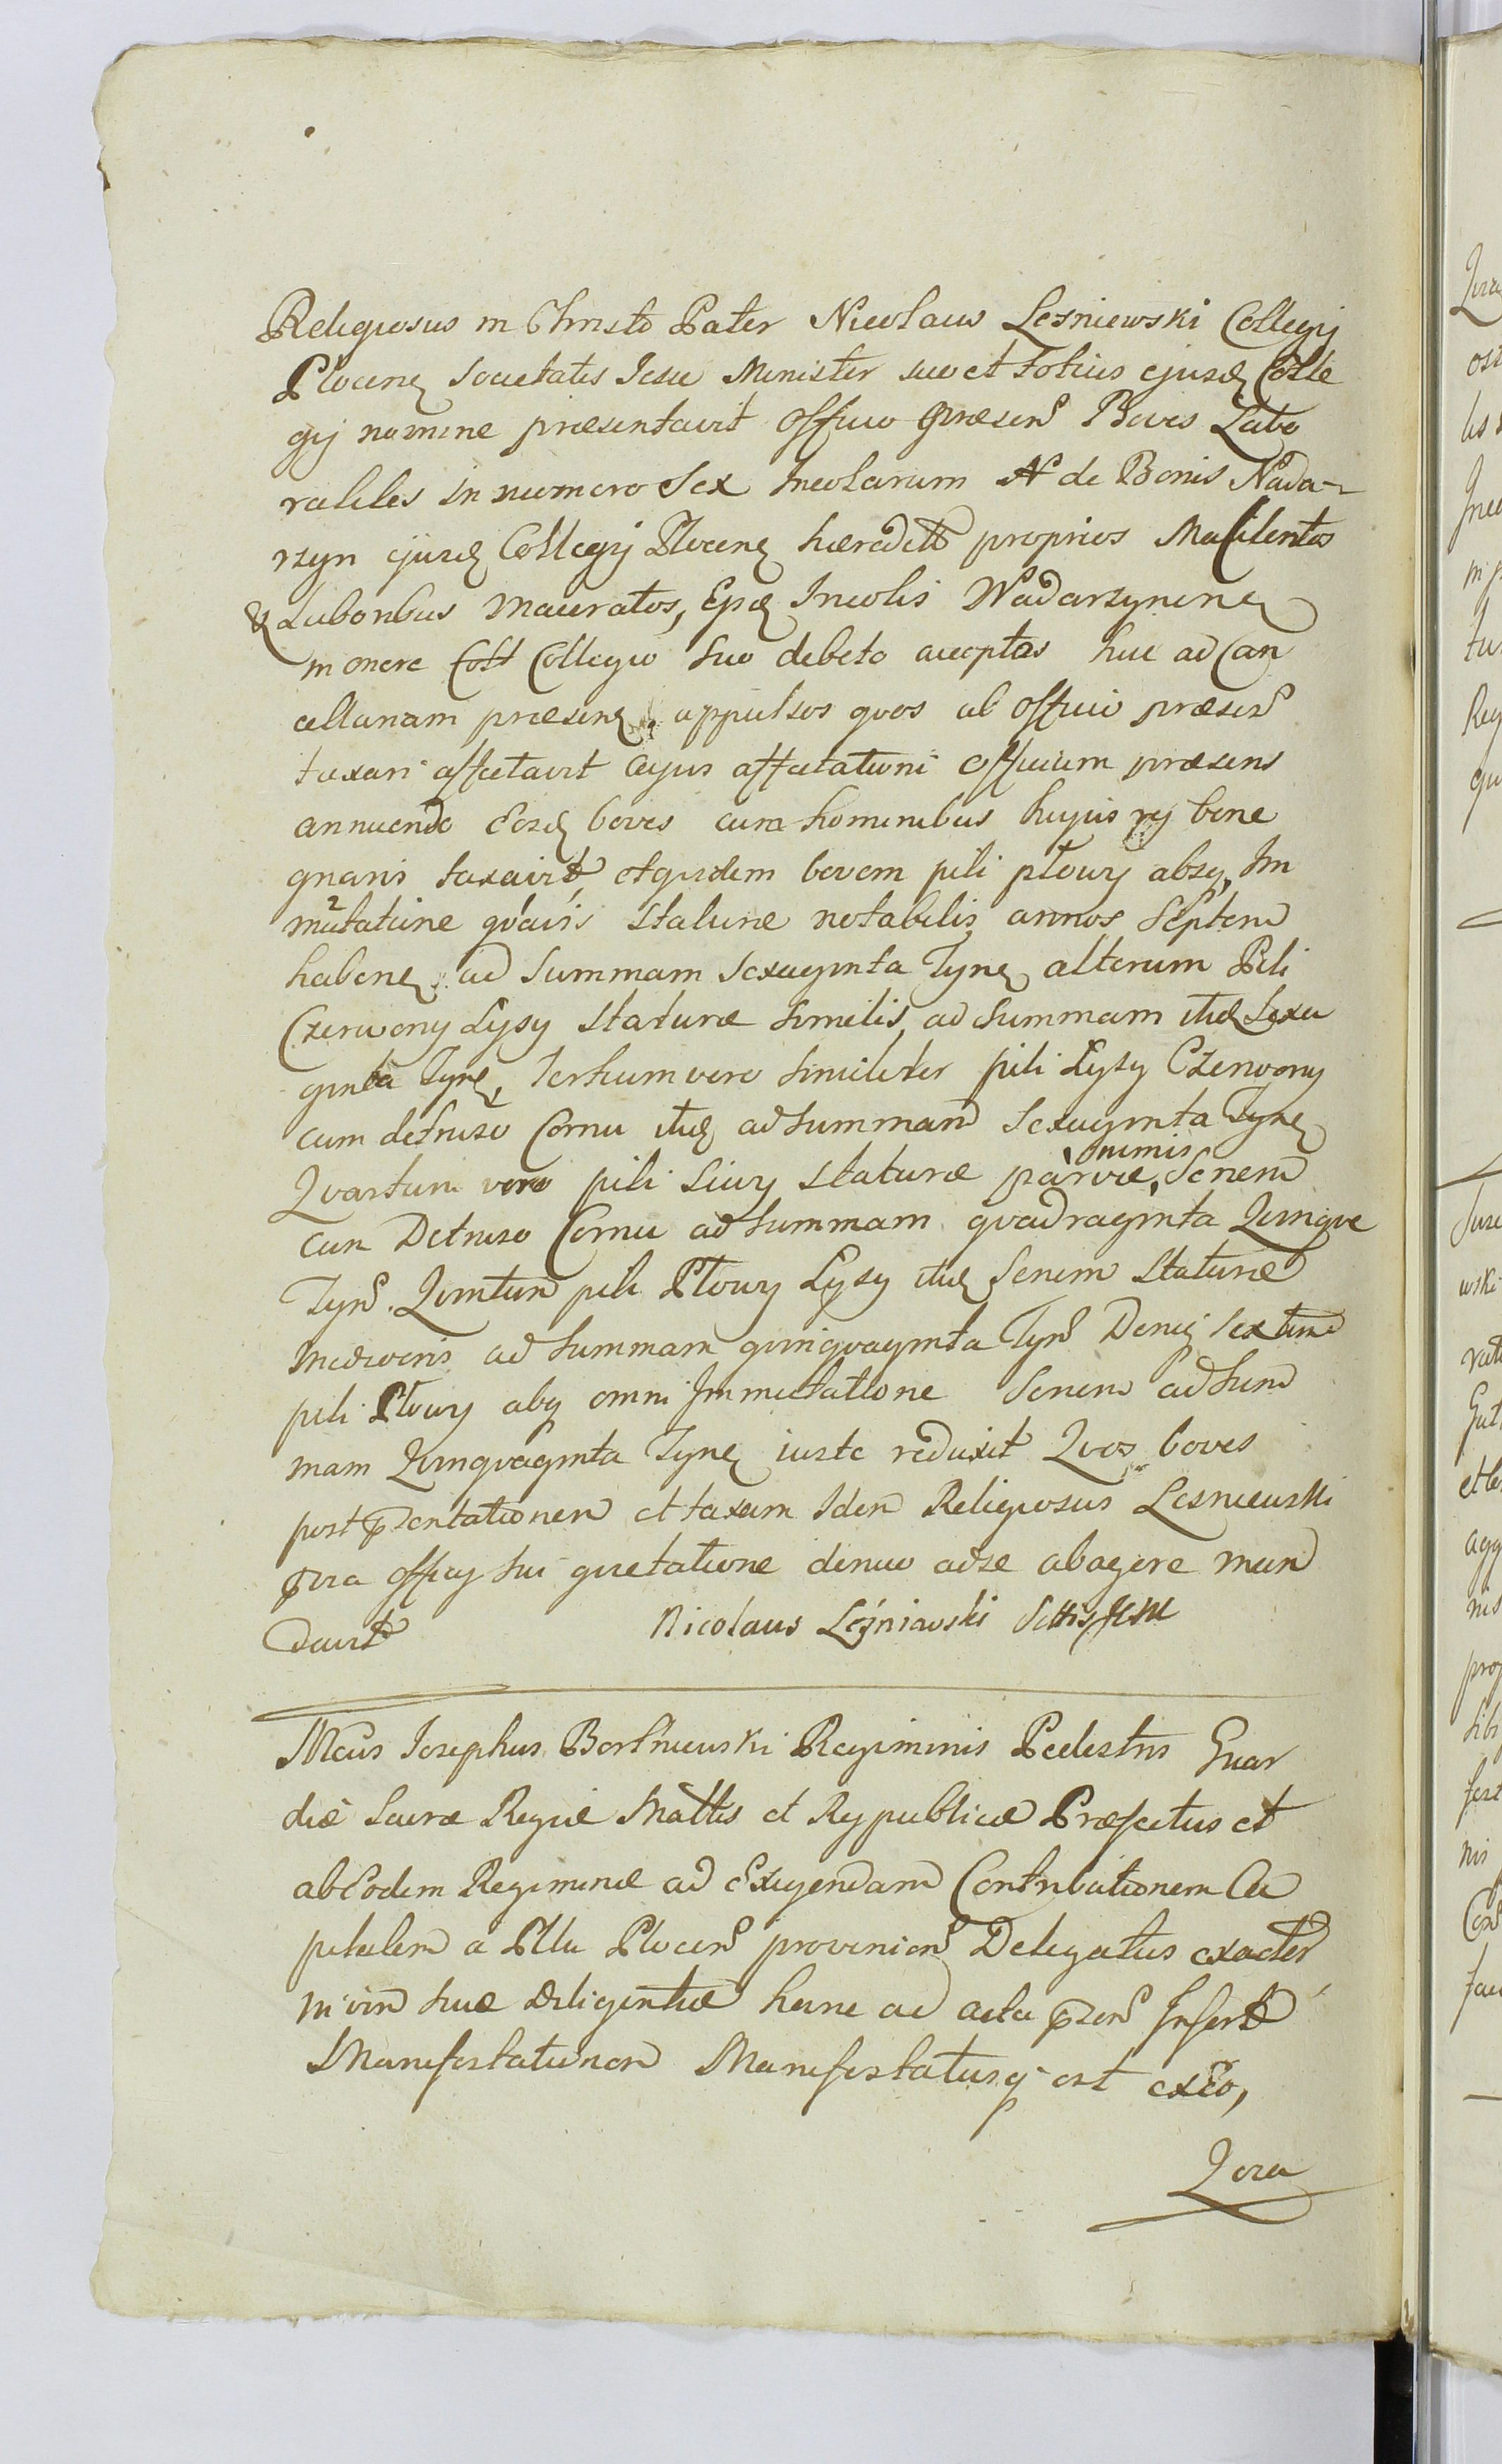 Religiosus in Christo Pater Nicolaus Lesniewski Collegij
Plocen Societatis Jesu Minister suo et totius ejusd Colle
gij nomine præsentavit Officio præsen Boves Labo
rabiles in numero Sex Incolarum de Bonis Nada-
rzyn ejusd Collegij Plocen hæredit proprios Macilentos
& Laboribus Maceratos, Incolis Nadarzynen
in onere Collegio suo debito acceptos huc ad Can
cellariam præsen appulsos quos ab Officio præsen
taxari affectavit cujus affectationi Officium præsens
annuendo Eosd boves cum hominibus hujus rej bene
gnaris taxavit, et quidem bovem pili płowy absq Im
mutatione staturæ notabilis annos Septem
haben ad Summam Sexaginta Tyn alterum Pili
Czerwony Łysy staturæ similis, ad summam itid Sexa
ginta Tyn, Tertium vero similiter pili Łysy Czerwony
cum detruso Cornu itid ad Summam Sexaginta Tyn
nimis
Quartum vero pili Siwy staturæ parvæ, Senem
cum Detruso Cornu ad Summam quadraginta Quinque
Tyn. Quintum pili Płowy Łysy itid Senem staturæ
mediocris ad Summam quinquaginta Tyn Deniq Sextum
pili Płowy absq omni Immutatione Senem ad Sum
mam Quinquaginta Tyn iuste reduxit Quos boves
post Pzentationem et taxam Idem Religiosus Lesniewski
officij sui quietatione denuo ad se abagere man
davit Nicolaus Leśniawski
Josephus Regiminis Pedestris Guar
diæ Sacræ Regiæ Mattis et Rypublicæ Præfectus et
ab Eodem Regimine ad Exigendam Contributionem Ca
pitalem a Pltu Plocen provenien Delegatus exactor
in vim suæ Diligentiæ hanc ad acta pzen Infert
Manifestationem Manifestatusq est ex Eo,